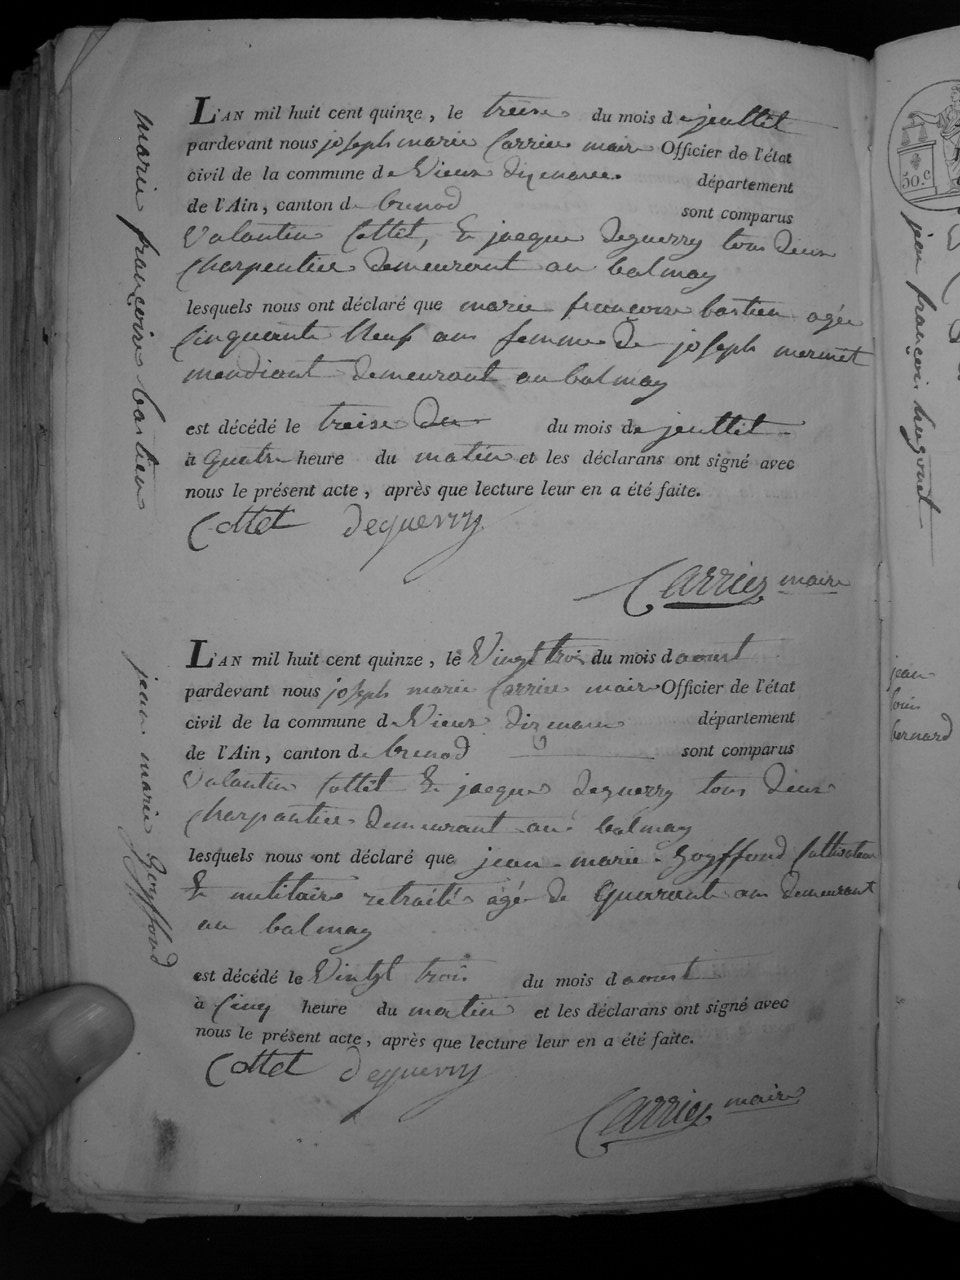 marie françoise bastien
L'AN mil huit cent quinze, le treise du mois de jeullet
pardevant nous joseph marie Carrier maire Officier de l'état
civil de la commune de Vieux dizenave département
de l'Ain, canton de brenod sont comparus
Valantin Cottet, & jacque deguerry tous deux
Charpentier demeurant au balmay
lesquels nous ont déclaré que marie françoise bastien agée
Cinquante Neuf ans femme de joseph mermet
mendiant demeurant au balmay
est décédé le treise du mois de jeullet
à quatre heure du matin et les déclarans ont signé avec
nous le présent acte, après que lecture leur en a été faite.
Cottet deguerry
Carrier maire
jean marie Goyffond
L'AN mil huit cent quinze, le Vingt trois du mois d aoust
pardevant nous joseph marie Carrier maire Officier de l'état
civil de la commune de Vieux dizenave département
de l'Ain, canton de brenod sont comparus
Valantin Cottet & jacque deguerry tous deux
Charpentier demeurant au balmay
lesquels nous ont déclaré que jean marie Goyffond Cultivateur
& militaire retraité agé de quarante ans demeurant
au balmay
est décédé le Vingt trois du mois d aoust
à Cinq heure du matin et les déclarans ont signé avec
nous le présent acte, après que lecture leur en a été faite.
Cottet deguerry
Carrier maire
50.c
jean françois hugonet
jean
louis
bernard